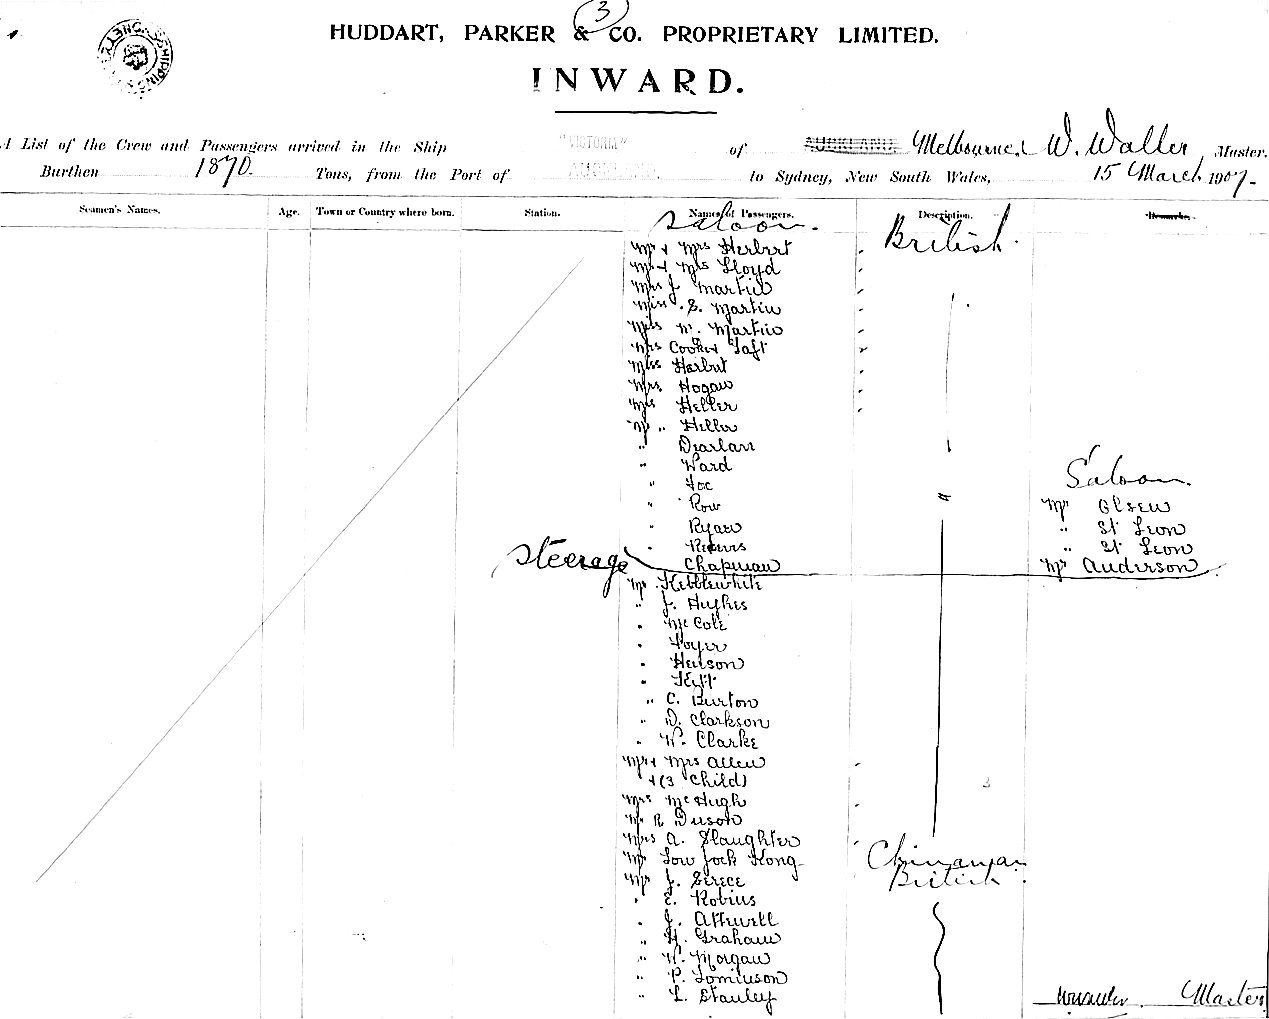 3
HUDDART, PARKER & CO. PROPRIETARY LIMITED.
INWARD.
A List of the Crew and Passengers arrived in the Ship "VICTORIA" of AUCKLAND Melbourne, W. Waller, Master.
Burthen 1870. Tons, from the Port of AUCKLAND. to Sydney, New South Wales, 15 March 1907.
Seamen's Names. Age. Town or Country where born. Station. Names of Passengers. Description. Remarks.
Saloon. British.
Mr & Mrs Herbert
Mr & Mrs Lloyd
Mrs J. Martin
Miss S. Martin
Miss M. Martin
Mrs Cooker Taft
Miss Herbert
Mrs. Hogan
Mrs Heller
Mr. Heller
" Dearlan
" Ward
" Foc
" Row
" Ryan
"
" Chapman
Saloon.
Mr Olsen
" St Leon
" St Leon
Mr Anderson
Steerage
Mr. Kebblewhite
" J. Hughes
" McCole
" Foyer
" Heilson
"
" C. Burton
" D. Clarkson
" W. Clarke
Mr & Mrs Allen
& (3 Child) 3
Mrs McHugh
Mr R. Duson
Mrs A. Slaughter
Mr Low Jock Hong Chinaman
Mr J. Serece British.
" E. Robins
" J. Attwell
" H. Graham
" W. Morgan
" P. Tomlinson
" L. Stanley
Master